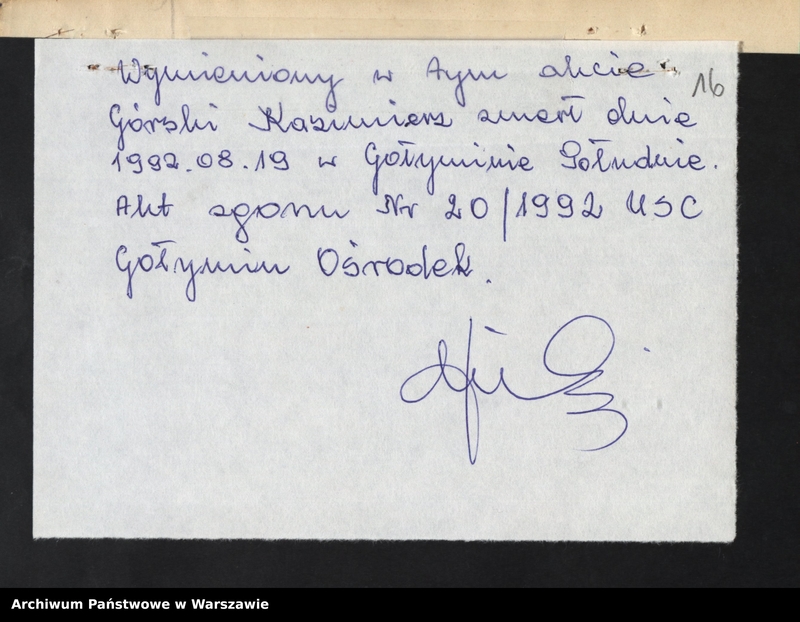 Wymieniony w tym akcie
16
Górski Kazimierz zmarł dnia
1992.08.19 w Gołyminie Południe.
Akt zgonu Nr 20/1992 USC
Gołymin Ośrodek.
Archiwum Państwowe w Warszawie